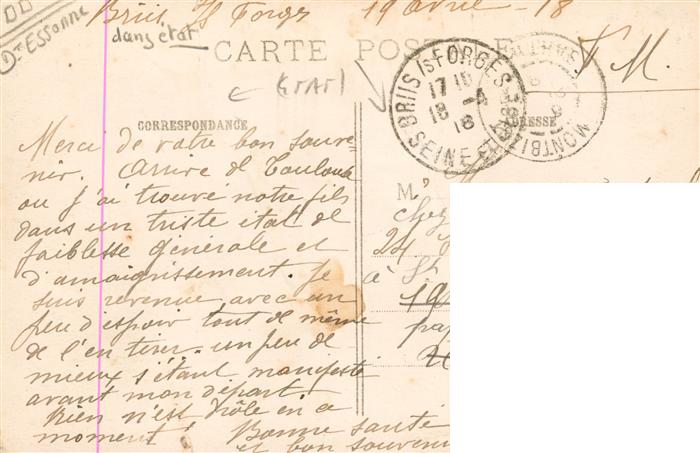 Briis s/ Forges 19 avril - 18
Dt ESSONNE
dans etat
CARTE POSTALE
F. M.
BRIIS /s FORGES
17 10
18 - 4
18
SEINE ET
MONTBIZOT
CORRESPONDANCE
ADRESSE
Merci de votre bon souve-
nir. Arrive de Toulouse
ou j'ai trouvé notre fils
dans un triste etat de
faiblesse générale et
d'amaigrissement. Je
suis revenue avec un
peu d'espoir tout de même
de l'en tirer. un peu de
mieux s'étant manifesté
avant mon départ
Rien n'est drôle en ce
moment! Bonne santé
et bon souvenir
Mr
chez
24
à St
19